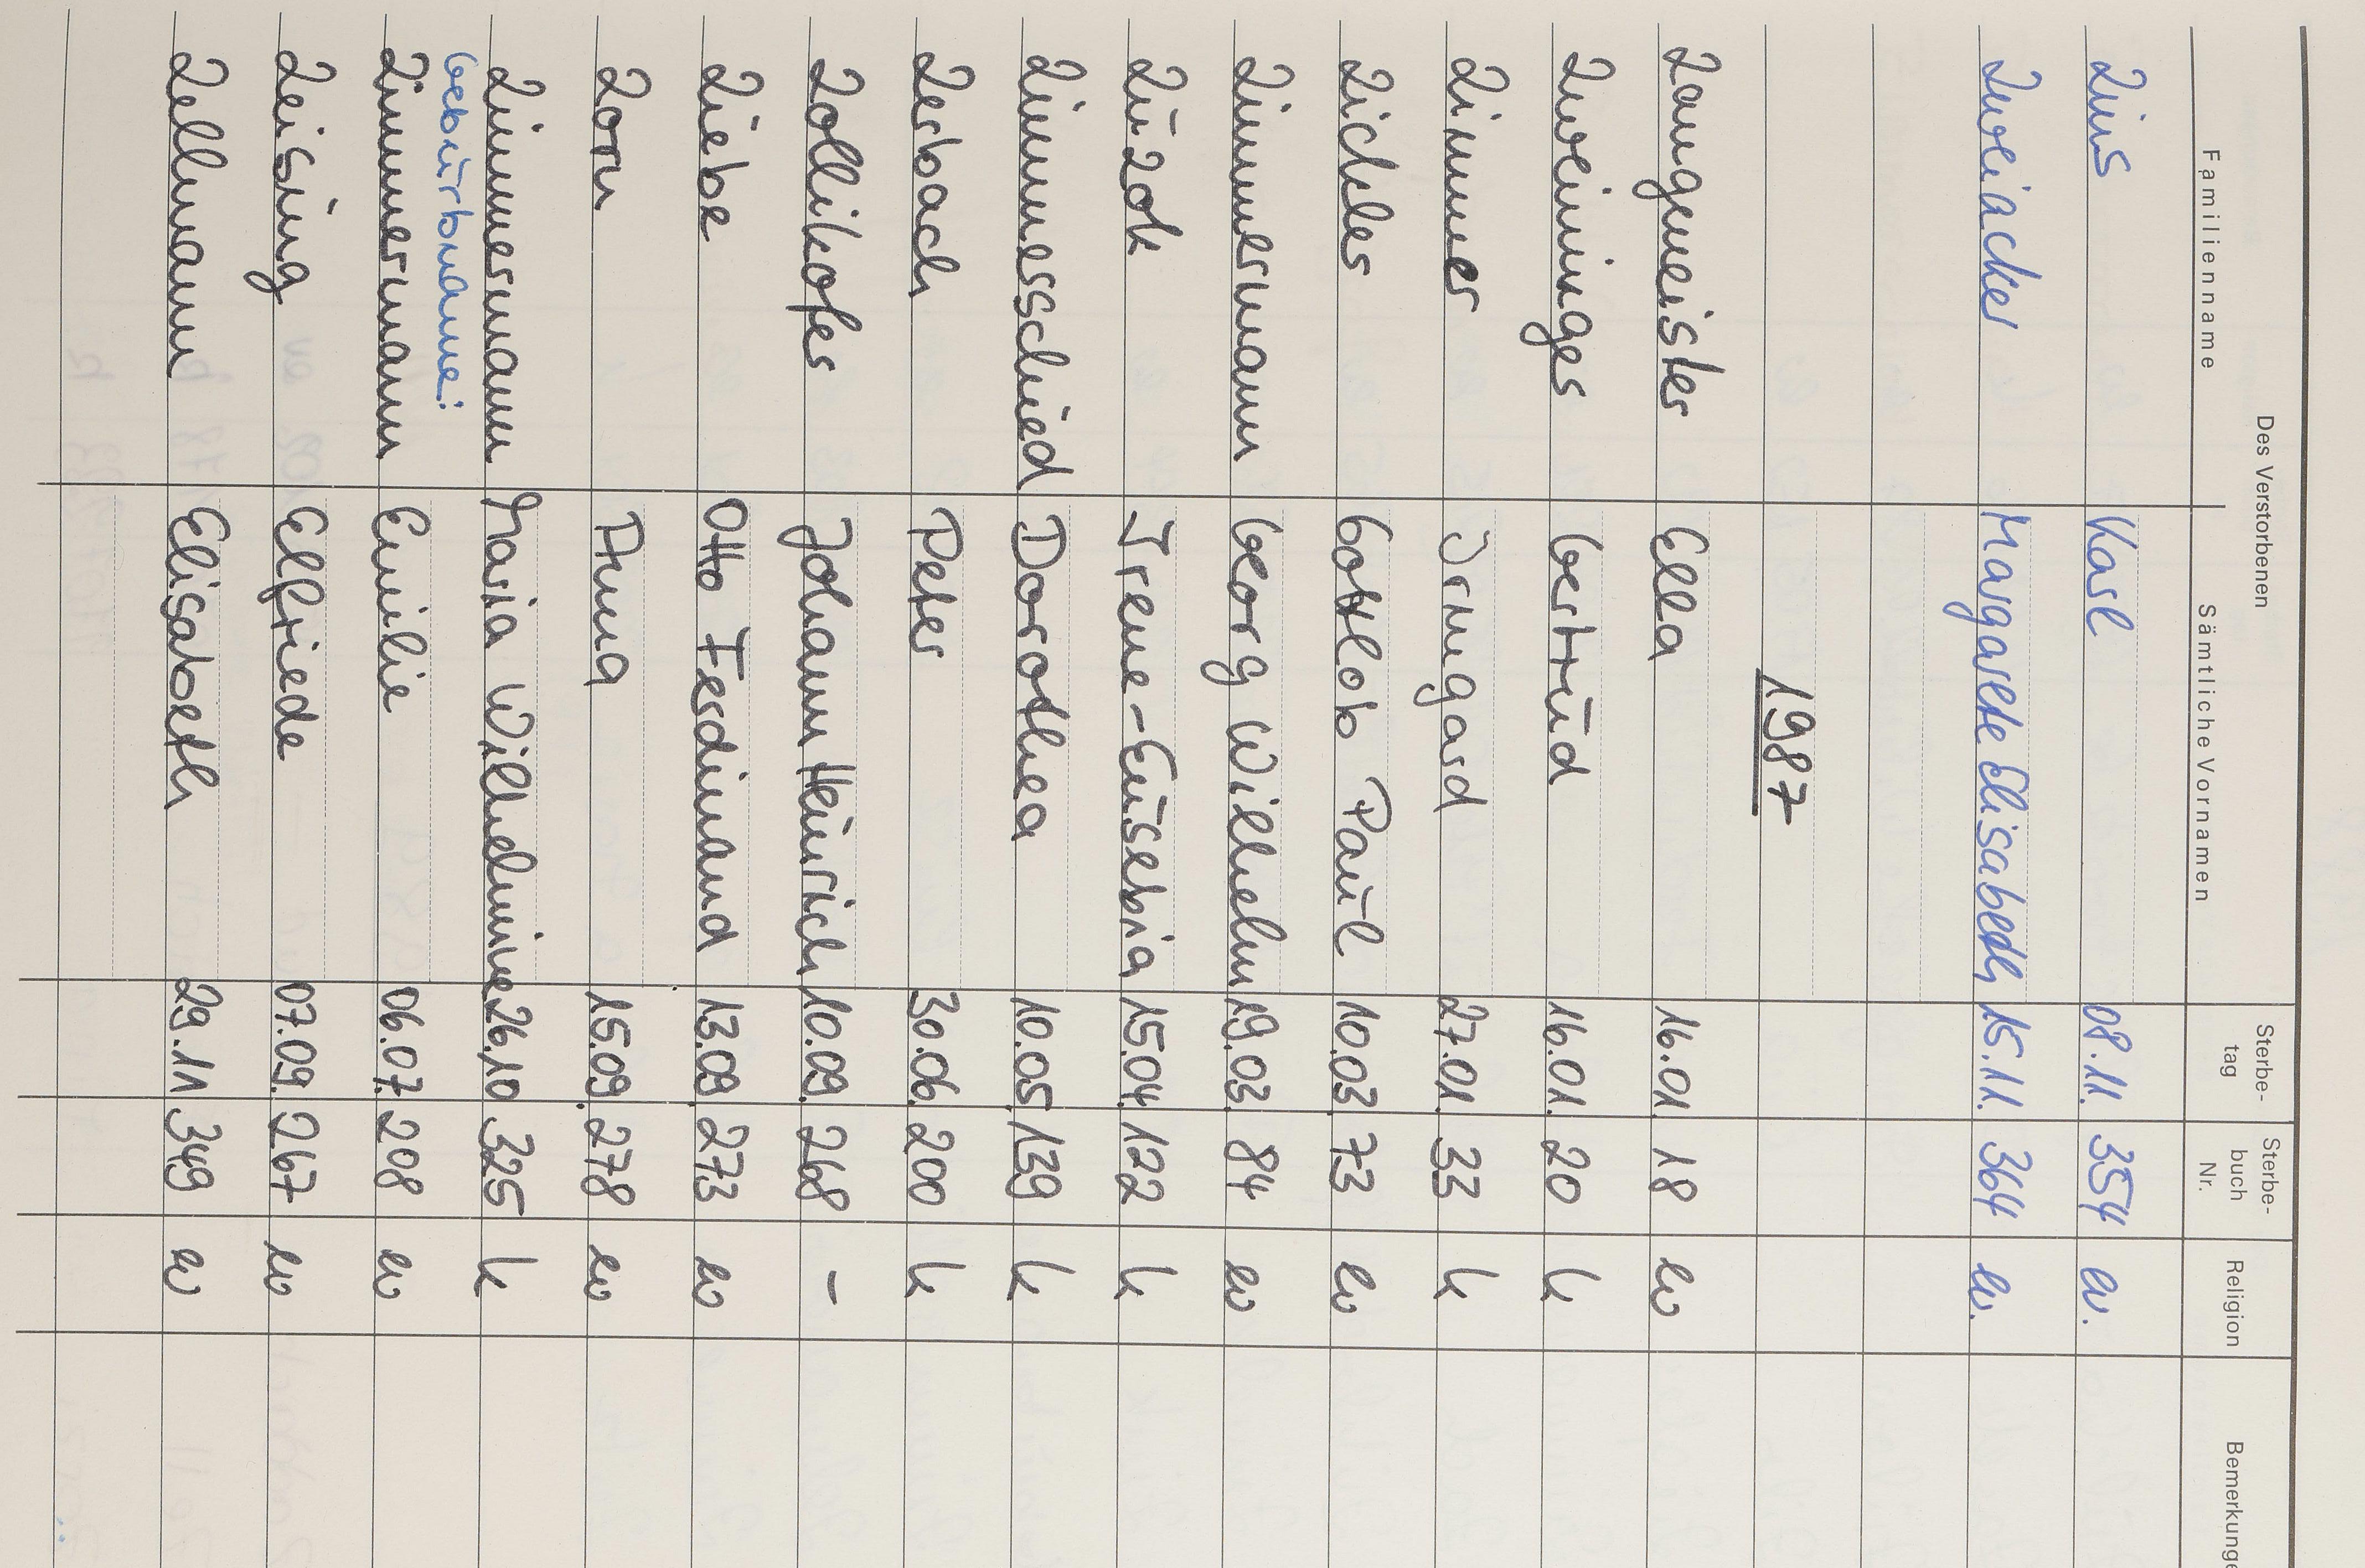 Des Verstorbenen
Familienname Sämtliche Vornamen Sterbe-tag Sterbe-buch Nr. Religion Bemerkunge
Zins Karl 08.11. 354 ev.
Zweiacker Margarete Elisabeth 15.11. 364 ev.
1987
Zaungmeister Ella 16.01. 18 ev
Zweininger Gertrud 16.01. 20 k
Zimmer Irmgard 27.01. 33 k
Zichler Gottlob Paul 10.03. 73 ev
Zimmermann Georg Wilhelm 19.03. 84 ev
Zuzok Irene-Eusebia 15.04. 122 k
Zimmerschied Dorothea 10.05. 139 k
Zerbach Peter 30.06. 200 k
Zollikofer Johann Heinrich 10.09. 268 –
Ziebe Otto Ferdinand 13.09. 273 ev
Zorn Anna 15.09. 278 ev
Zimmermann Maria Wilhelmine 26.10. 325 k
Geburtsname:
Zimmermann Emilie 06.07. 208 ev
Zeising Elfriede 07.09. 267 ev
Zellmann Elisabeth 29.11 349 ev